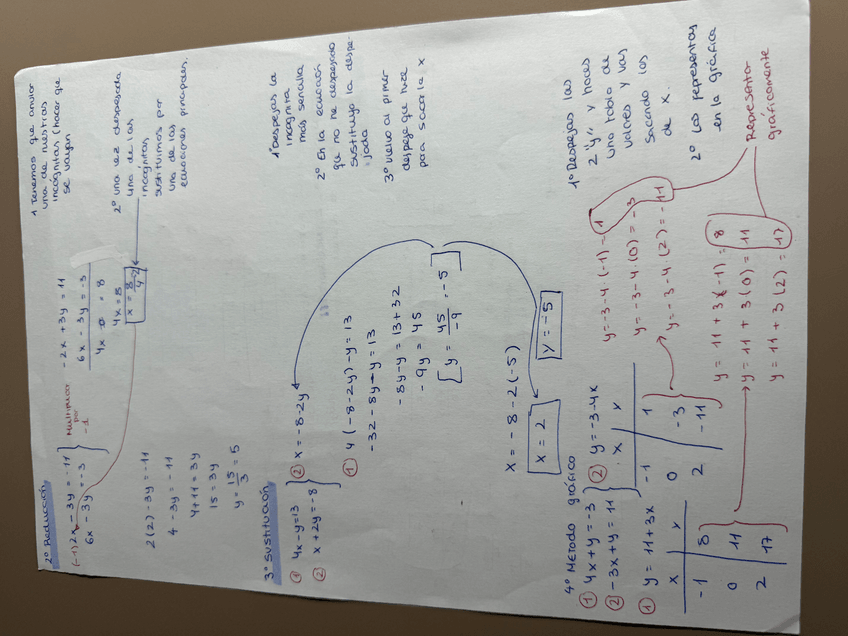 2º Reducción
(-1) 2x - 3y = -11
6x - 3y = -3
Multiplico
por
-1
-2x + 3y = 11
6x - 3y = -3
4x 0 = 8
4x = 8
x = 8/4 = 2
2(2) - 3y = -11
4 - 3y = -11
4 + 11 = 3y
15 = 3y
y = 15/3 = 5
1 Tenemos que anular
una de nuestras
incógnitas (hacer que
se vayan
2º una vez despejada
una de las
incógnitas,
sustituimos por
una de las
ecuaciones principales.
3º Sustitución
① 4x - y = 13
② x + 2y = -8
② x = -8 - 2y
① 4(-8-2y) - y = 13
-32 - 8y - y = 13
-8y - y = 13 + 32
-9y = 45
[y = 45/-9 = -5]
x = -8 - 2(-5)
x = 2
y = -5
1º Despejas la
incógnita
más sencilla
2º En la ecuación
que no he despejado
sustituyo la despe-
jada
3º vuelvo al primer
despeje que hice
para sacar la x
4º Método gráfico
① 4x + y = -3
② -3x + y = 11
① y = 11 + 3x
x y
-1 8
0 11
2 17
② y = -3 - 4x
x y
-1 1
0 -3
2 -11
y = -3 - 4 · (-1) = 1
y = -3 - 4 · (0) = -3
y = -3 - 4 (2) = -11
y = 11 + 3 (-1) = 8
y = 11 + 3 (0) = 11
y = 11 + 3 (2) = 17
1º Despejas las
2 "y" y haces
una tabla de
valores y vas
sacando los
de x.
2º Los representas
en la gráfica
Representar
gráficamente